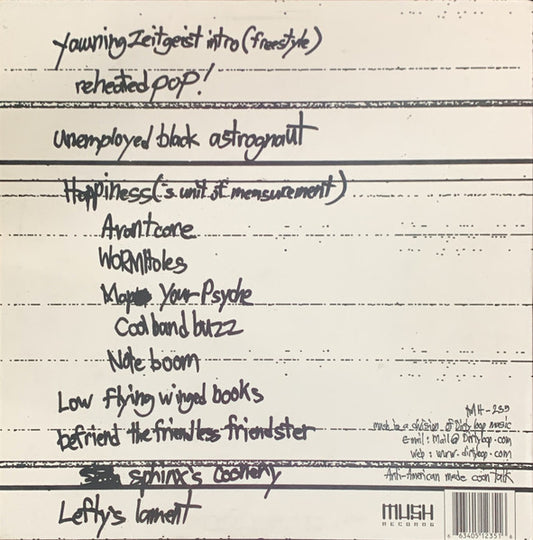 Yawning Zeitgeist intro (freestyle)
reheated pop!
unemployed black astronaut
Happiness ('s unit of measurement)
Avantcore
WORMHoles
Map Your Psyche
Cool band buzz
Note boom
Low flying winged books
befriend the friendless friendster
sphinx's coonery
Lefty's lament
MH-235
mush is a division of Dirty Loop music
e-mail: Mail@Dirtyloop.com
web: www.dirtyloop.com
Anti-American made coon talk
MUSH
RECORDS
6 63405 12351 6